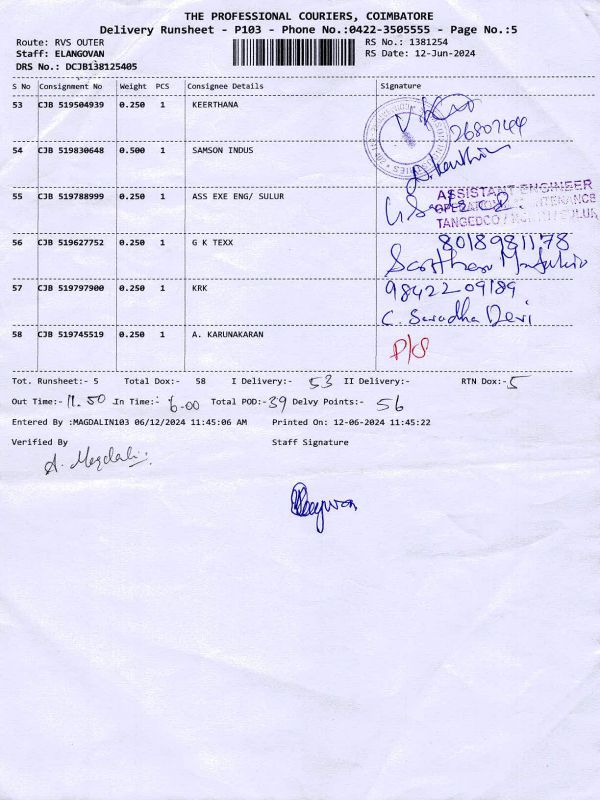 THE PROFESSIONAL COURIERS, COIMBATORE
Delivery Runsheet - P103 - Phone No.:0422-3505555 - Page No.:5
Route: RVS OUTER RS No.: 1381254
Staff: ELANGOVAN RS Date: 12-Jun-2024
DRS No.: DCJB138125405
S No Consignment No Weight PCS Consignee Details Signature
53 CJB 519504939 0.250 1 KEERTHANA
54 CJB 519830648 0.500 1 SAMSON INDUS
55 CJB 519788999 0.250 1 ASS EXE ENG/ SULUR
ASSISTANT ENGINEER
TANGEDCO
8018981178
56 CJB 519627752 0.250 1 G K TEXX
57 CJB 519797900 0.250 1 KRK 9842209189
C. Saradha Devi
58 CJB 519745519 0.250 1 A. KARUNAKARAN P/S
Tot. Runsheet:- 5 Total Dox:- 58 I Delivery:- 53 II Delivery:- RTN Dox:- 5
Out Time:- 11.50 In Time:- 6.00 Total POD:- 39 Delvy Points:- 56
Entered By :MAGDALIN103 06/12/2024 11:45:06 AM Printed On: 12-06-2024 11:45:22
Verified By Staff Signature
A. Magdali